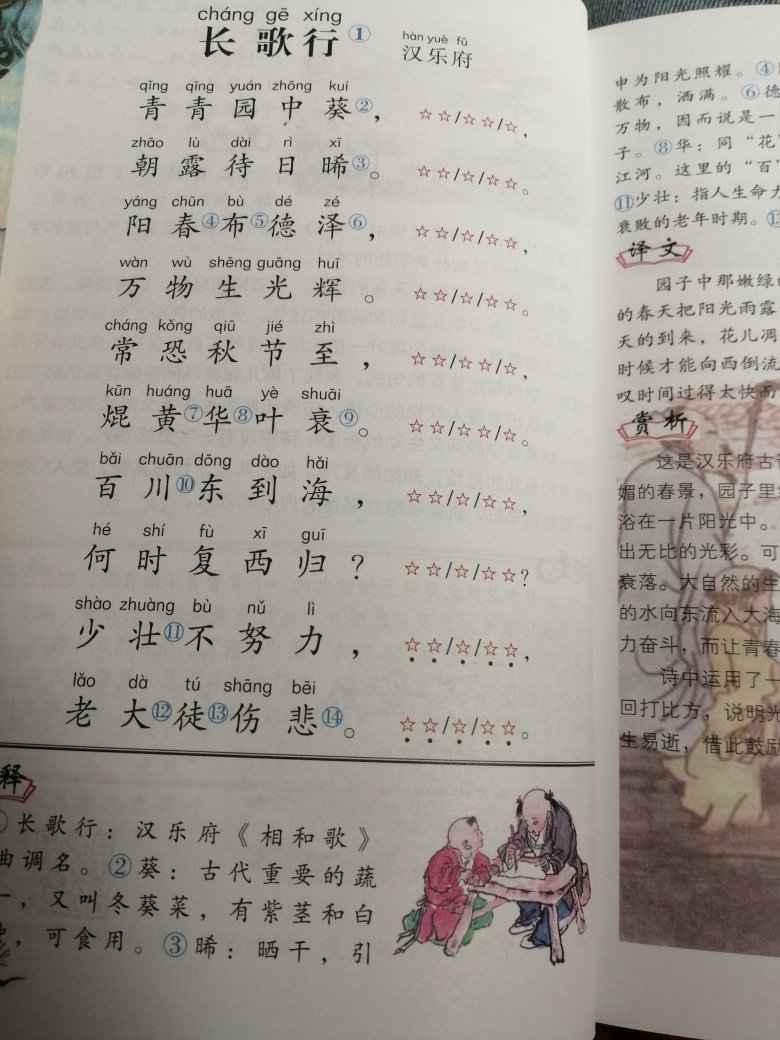 cháng gē xíng
长歌行①
hàn yuè fǔ
汉乐府
qīng qīng yuán zhōng kuí
青青园中葵②， ☆☆/☆☆/☆，
zhāo lù dài rì xī
朝露待日晞③。 ☆☆/☆/☆☆。
yáng chūn bù dé zé
阳春④布⑤德泽⑥， ☆☆/☆/☆☆，
wàn wù shēng guāng huī
万物生光辉。 ☆☆/☆/☆☆。
cháng kǒng qiū jié zhì
常恐秋节至， ☆☆/☆☆/☆，
kūn huáng huā yè shuāi
焜黄⑦华⑧叶衰⑨。 ☆☆/☆☆/☆。
bǎi chuān dōng dào hǎi
百川⑩东到海， ☆☆/☆☆/☆，
hé shí fù xī guī
何时复西归？ ☆☆/☆/☆☆？
shào zhuàng bù nǔ lì
少壮⑪不努力， ☆☆/☆/☆☆，
lǎo dà tú shāng bēi
老大⑫徒⑬伤悲⑭。 ☆☆/☆/☆☆。
释
长歌行：汉乐府《相和歌》
曲调名。②葵：古代重要的蔬
一，又叫冬葵菜，有紫茎和白
，可食用。③晞：晒干，引
申为阳光照耀。④
散布，洒满。⑥德
万物，因而说是一
子。⑧华：同“花”
江河。这里的“百
⑪少壮：指人生命力
衰败的老年时期。
译文
园子中那嫩绿
的春天把阳光雨露
天的到来，花儿凋
时候才能向西倒流
叹时间过得太快而
赏析
这是汉乐府古
媚的春景，园子里
浴在一片阳光中。
出无比的光彩。可
衰落。大自然的生
的水向东流入大海
力奋斗，而让青春
诗中运用了一
回打比方，说明光
生易逝，借此鼓励